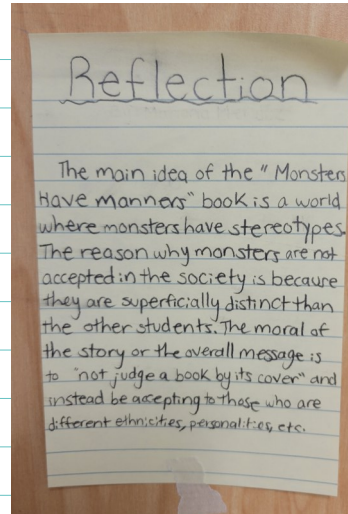 Reflection
The main idea of the "Monsters
Have manners" book is a world
where monsters have stereotypes.
The reason why monsters are not
accepted in the society is because
they are superficially distinct than
the other students. The moral of
the story or the overall message is
to "not judge a book by its cover" and
instead be accepting to those who are
different ethnicities, personalities, etc.